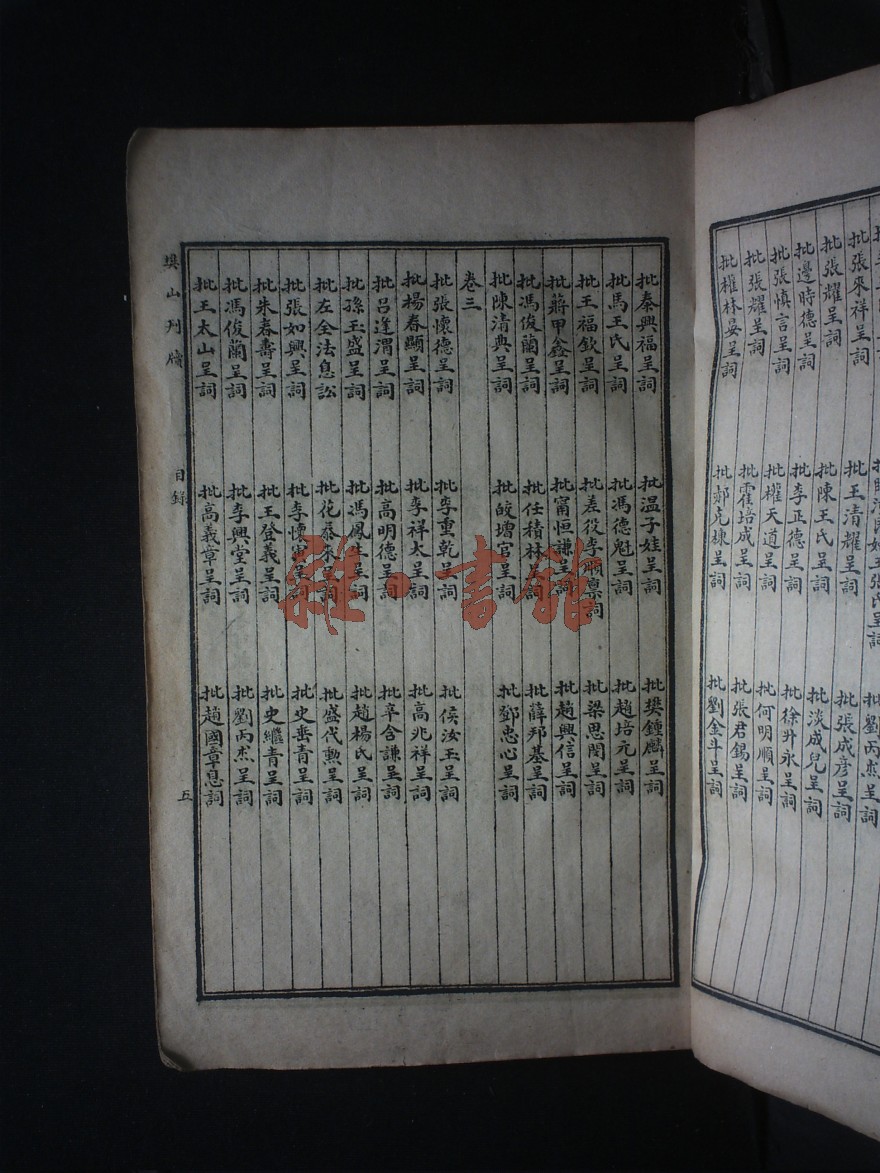 批張來祥呈詞
批王清耀呈詞
批劉丙焘呈詞
批張耀呈詞
批陳王氏呈詞
批張成彦呈詞
批邊時德呈詞
批李正德呈詞
批淡成兒呈詞
批張慎言呈詞
批權天道呈詞
批徐升永呈詞
批張耀呈詞
批霍培成呈詞
批何明順呈詞
批權林晏呈詞
批郝克棟呈詞
批張君錫呈詞
批劉金斗呈詞
批秦興福呈詞
批温子娃呈詞
批樊鍾麟呈詞
批馬王氏呈詞
批馮德魁呈詞
批趙培元呈詞
批王福欽呈詞
批差役李順稟詞
批梁思閔呈詞
批蔣甲鑫呈詞
批甯恒謙呈詞
批趙興信呈詞
批馮俊蘭呈詞
批任積林呈詞
批薛邦基呈詞
批陳清典呈詞
批皎增官呈詞
批鄧忠心呈詞
卷三
批張懷德呈詞
批李重乾呈詞
批侯汝玉呈詞
批楊春顯呈詞
批李祥太呈詞
批高兆祥呈詞
批呂逢渭呈詞
批高明德呈詞
批辛含謙呈詞
批孫玉盛呈詞
批馮鳳生呈詞
批趙楊氏呈詞
批左全法息訟
批花泰來呈詞
批盛代勲呈詞
批張如興呈詞
批李懷寅呈詞
批史垂青呈詞
批朱春壽呈詞
批王登義呈詞
批史繼青呈詞
批馮俊蘭呈詞
批李興堂呈詞
批劉丙焘呈詞
批王太山呈詞
批高義章呈詞
批趙國章息詞
樊山判牘
目錄
五
雜·書館